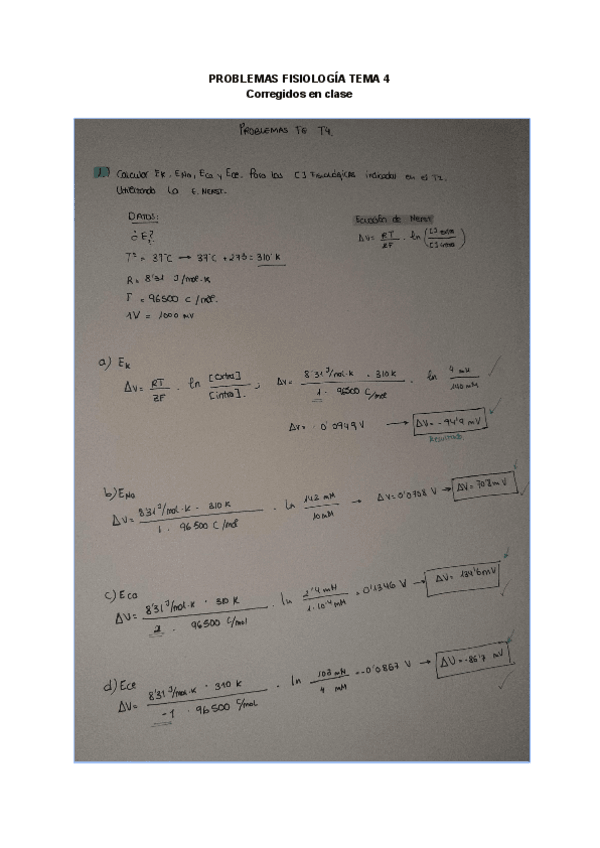 PROBLEMAS FISIOLOGÍA TEMA 4
Corregidos en clase
PROBLEMAS T4.
1.) Calcular Ek, ENa, ECa y ECe. Para las [ ] Fisiológicas indicadas en el T2.
Utilizando la E. NERST.
DATOS:
¿E?
Tª = 37ºC → 37ºC + 273 = 310'K
R = 8'31 J/mol·K
F = 96500 C/mol.
1V = 1000 mV
Ecuación de Nerst
ΔV = RT/ZF · ln ([ ] extra/[ ] intra)
a) Ek
ΔV = RT/ZF · ln [extra]/[intra]. ; ΔV = 8'31 J/mol·K · 310 K / 1 · 96500 C/mol · ln 4 mM/140 mM
ΔV = -0'0949 V → ΔV = -94'9 mV
Resultado.
b) ENa
ΔV = 8'31 J/mol·K · 310 K / 1 · 96500 C/mol · ln 142 mM/10 mM → ΔV = 0'0708 V → ΔV = 70'8 mV
c) ECa
ΔV = 8'31 J/mol·K · 310 K / 2 · 96500 C/mol · ln 2'4 mM/1·10⁻⁴ mM = 0'1346 V → ΔV = 134'6 mV
d) ECe
ΔV = 8'31 J/mol·K · 310 K / -1 · 96500 C/mol · ln 103 mM/4 mM = -0'0867 V → ΔV = -86'7 mV